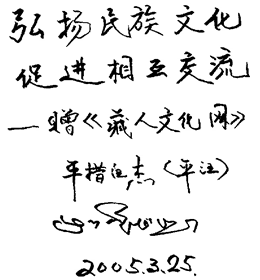 弘扬民族文化
促进相互交流
—赠《藏人文化网》
平措汪杰(平汪)
2005.3.25.